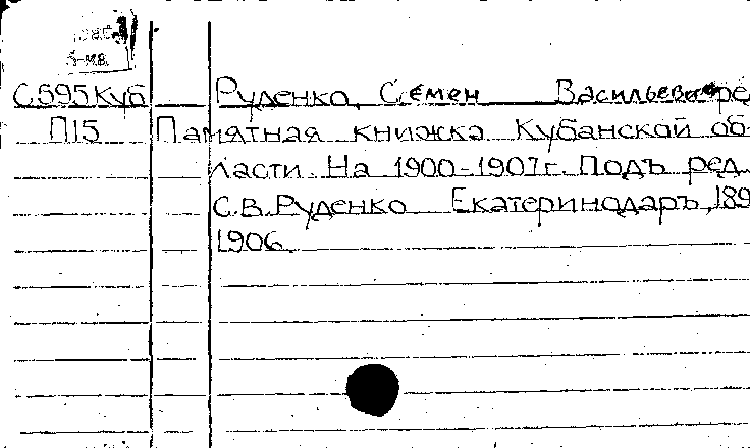 б-ка
С595Куб Руденко, Семен Васильевич ре
П15 Памятная книжка Кубанской об-
ласти. На 1900-1907г. Подъ ред.
С.В.Руденко Екатеринодаръ, 189
1906.